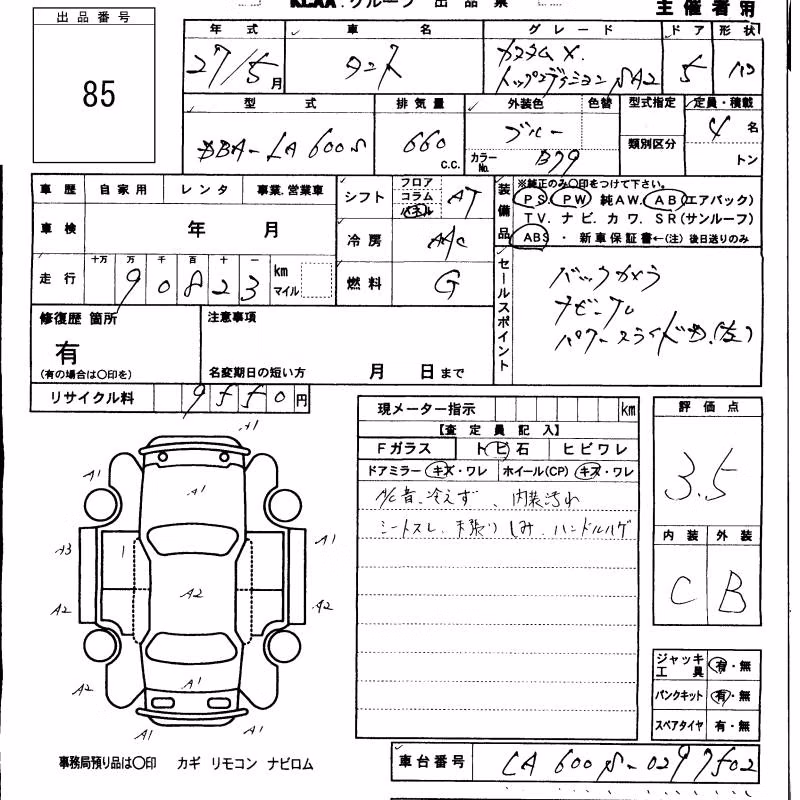 KCAA.グループ 出品票
主催者用
出品番号
85
年式 車名 グレード ドア 形状
27/5月 タント カスタムX トップエディションSA2 5 バン
型式 排気量 外装色 色替 型式指定 定員・積載
DBA-LA600S 660 C.C. ブルー 4名
カラーNo. B79 類別区分 トン
車歴 自家用 レンタ 事業、営業車
シフト フロア コラム パネル AT
装備品 ※純正のみ〇印をつけて下さい。
PS. PW 純AW. AB(エアバック)
TV. ナビ. カワ. SR(サンルーフ)
ABS ・ 新車保証書←(注) 後日送りのみ
車検 年 月
冷房 AAC
走行 十万 万 千 百 十 一 km マイル
90823
燃料 G
セールスポイント
バックカメラ
ナビ・テレ
パワースライドドア(左)
修復歴 箇所
有
(有の場合は〇印を)
注意事項
名変期日の短い方 月 日まで
リサイクル料 9550円
現メーター指示 km
【査定員記入】
Fガラス トビ石 ヒビワレ
ドアミラー キズ・ワレ ホイール(CP) キズ・ワレ
A/C音、冷えず、内装汚れ
シートスレ、天張りしみ、ハンドルハゲ
評価点
3.5
内装 外装
C B
A1
A1
A1
A3
1
A1
A2
A2
A2
A2
A1
A1
A1
ジャッキ工具 有・無
パンクキット 有・無
スペアタイヤ 有・無
事務局預り品は〇印 カギ リモコン ナビロム
車台番号 LA600S-0297502